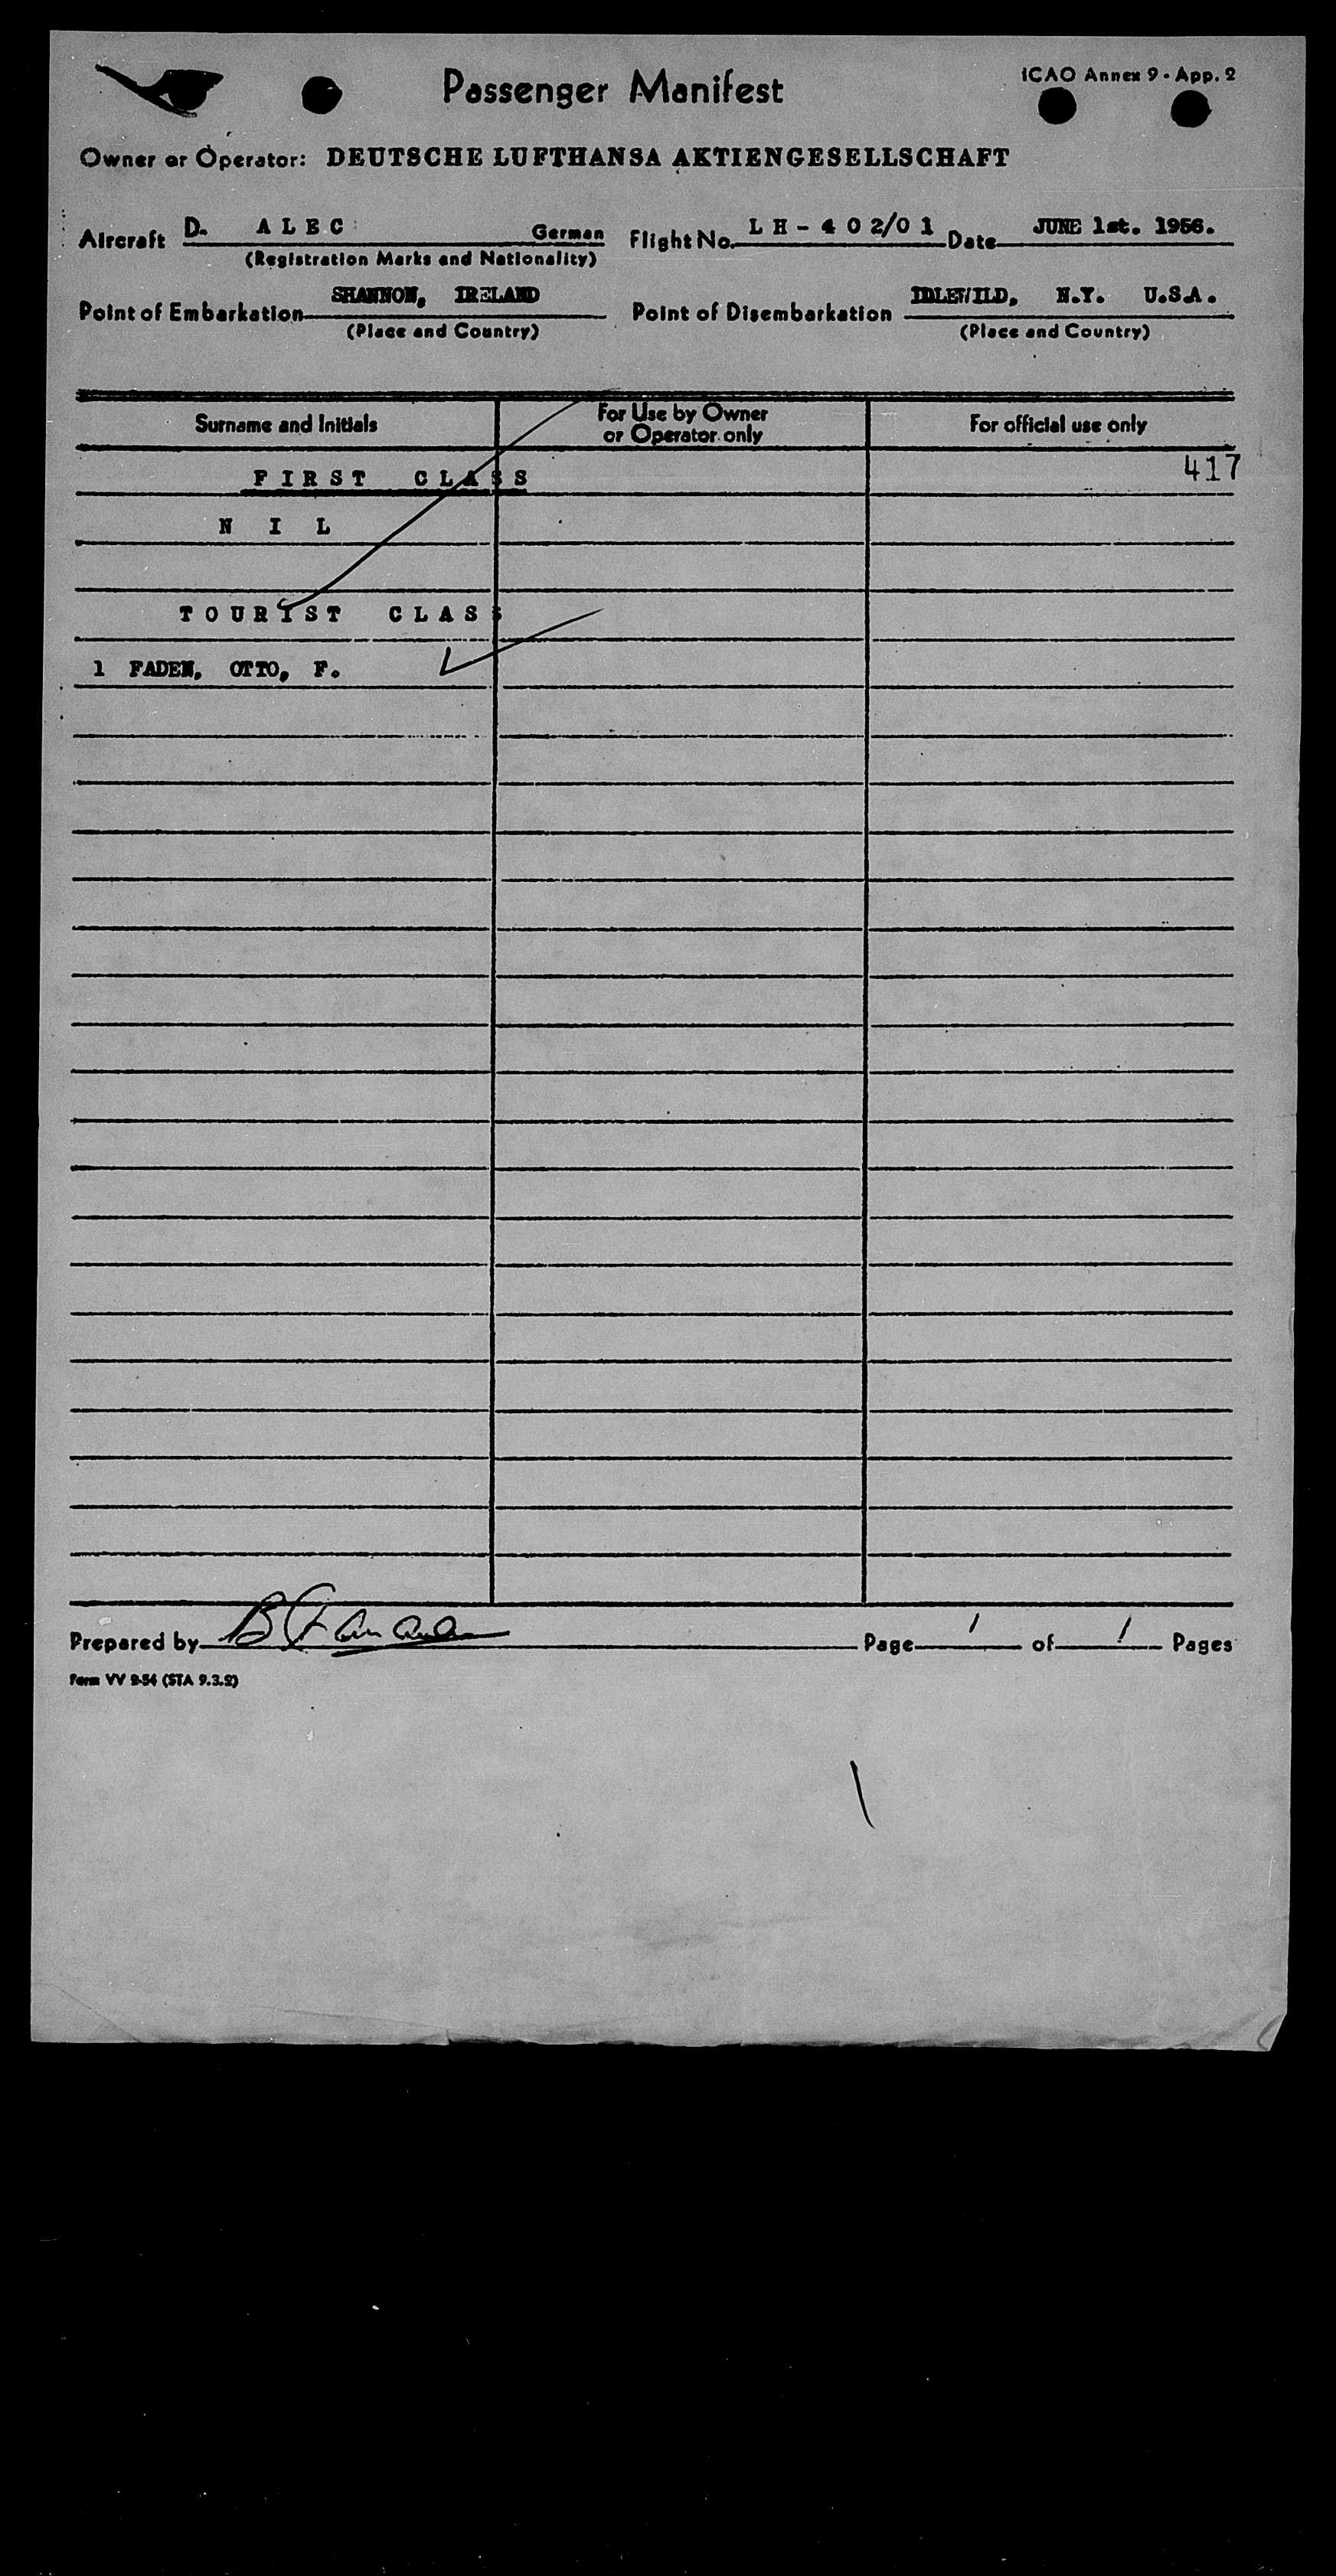 Passenger Manifest
ICAO Annex 9 - App. 2
Owner or Operator: DEUTSCHE LUFTHANSA AKTIENGESELLSCHAFT
Aircraft D. A L E C German Flight No. L H - 4 0 2/0 1 Date JUNE 1st. 1956.
(Registration Marks and Nationality)
Point of Embarkation SHANNON, IRELAND Point of Disembarkation IDLEWILD, N.Y. U.S.A.
(Place and Country) (Place and Country)
Surname and Initials For Use by Owner or Operator only For official use only
F I R S T C L A S S 417
N I L
T O U R I S T C L A S S
1 FADEN, OTTO, F.
Prepared by Page 1 of 1 Pages
Form VV 9-54 (STA 9.3.2)